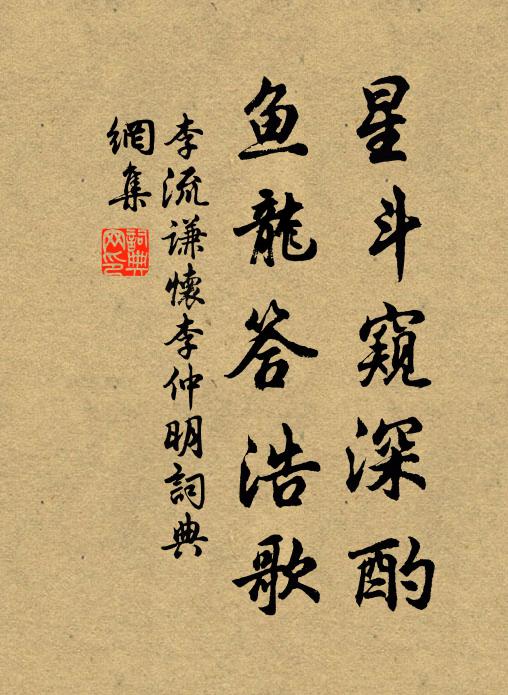 星斗窺深酌
鱼龍答浩歌
李流谦懷李仲明詞典
網集
詞典網印